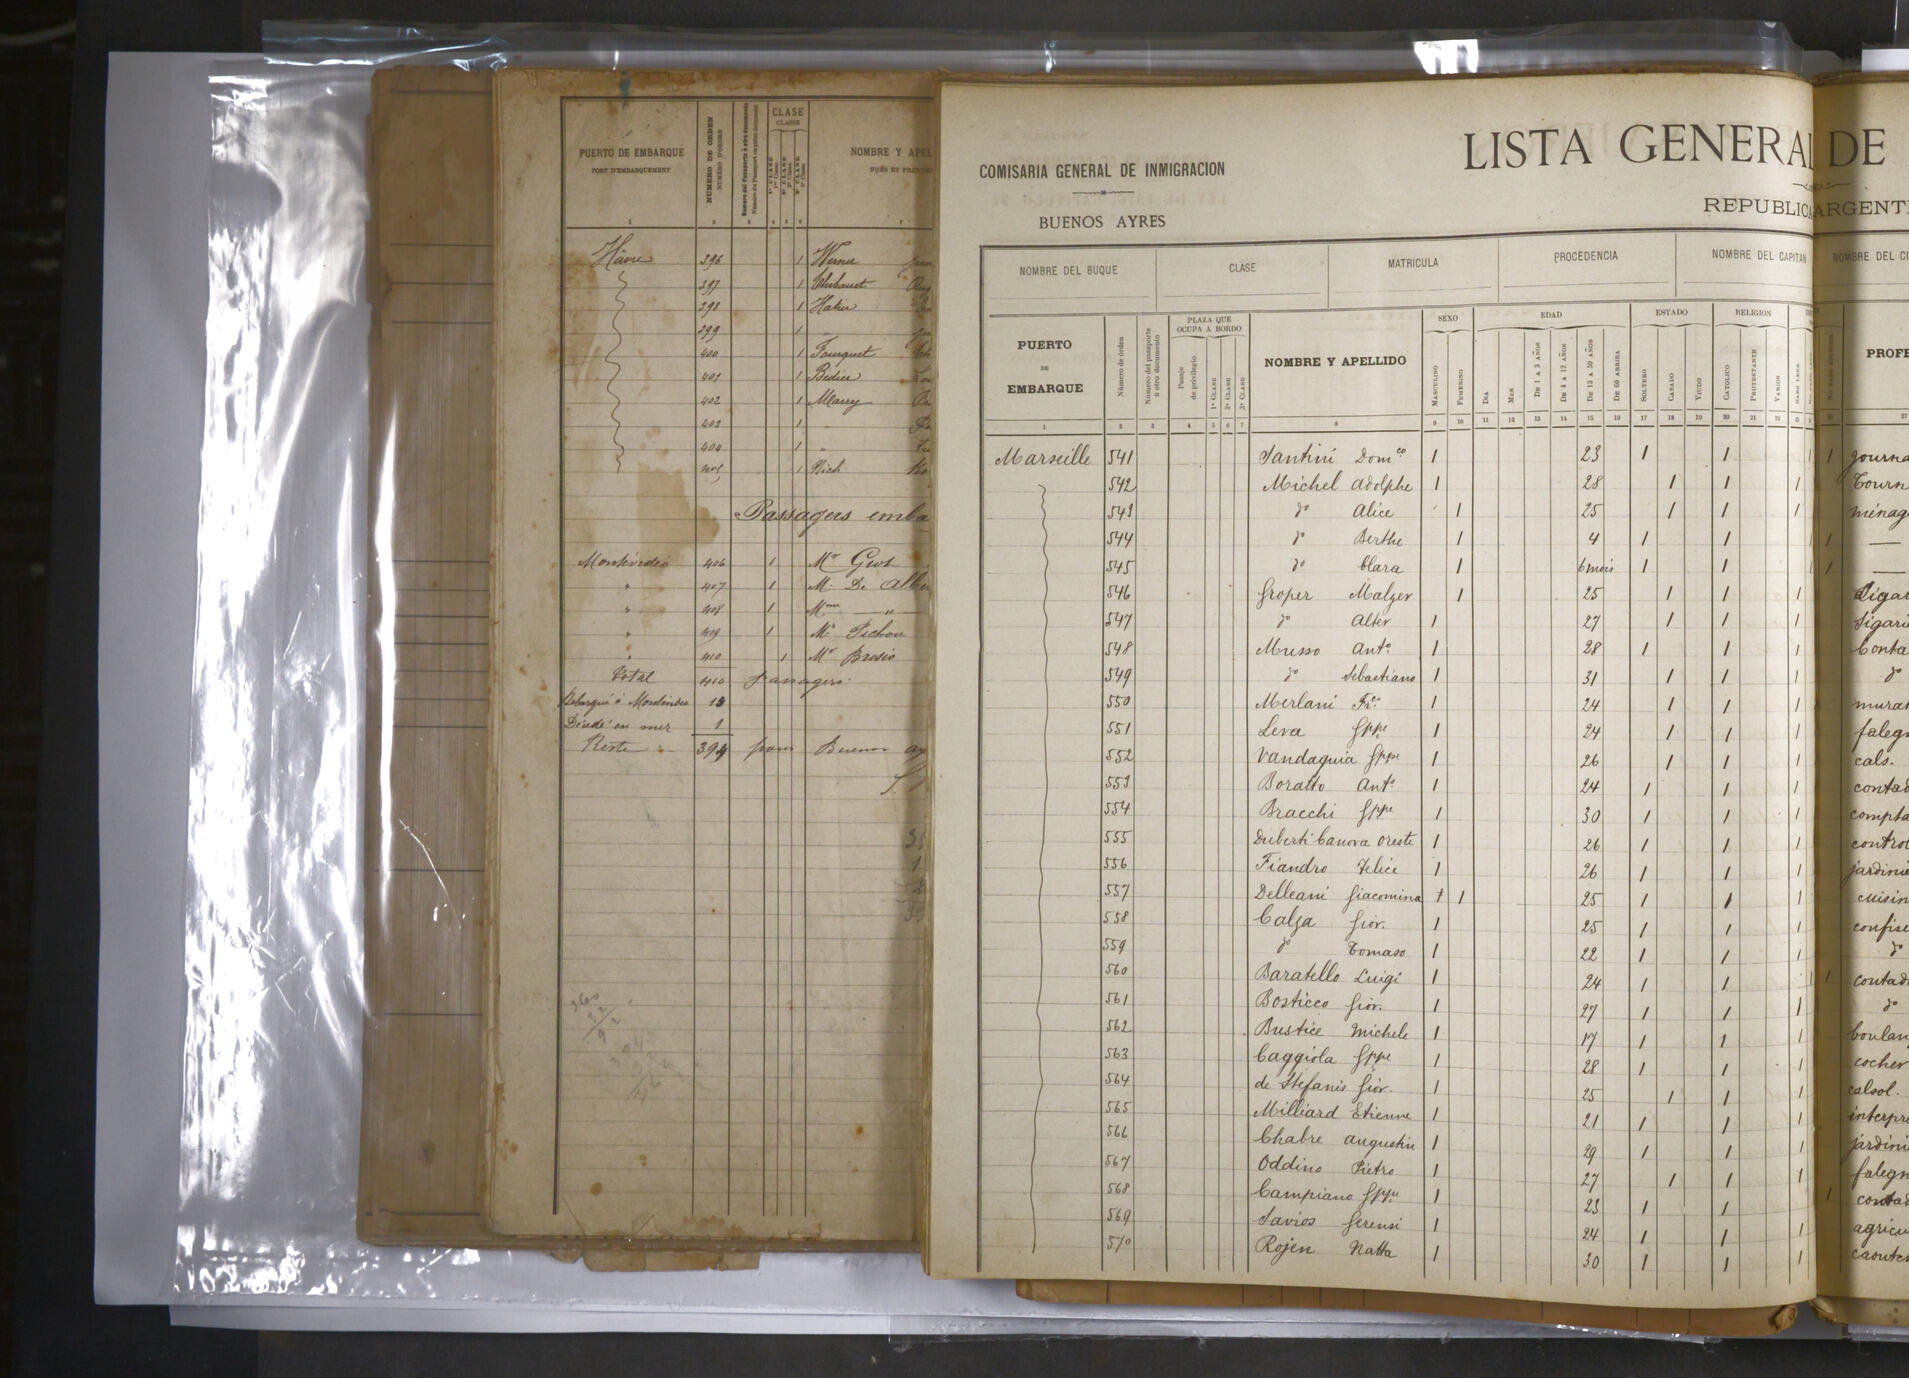 PUERTO DE EMBARQUE
PORT D'EMBARQUEMENT
NUMERO DE ORDEN
NUMÉRO D'ORDRE
CLASE
CLASSE
NOMBRE Y APEL
1 2 3 4 5 6 7
Hâvre 396 1 Werner
397 1 Thibaut
398 1 Hatier
399 1 "
400 1 Fourquet
401 1 Bedier
402 1 Marry
403 1 "
404 1 "
405 1 Rich
Passagers emba
Montévidéo 406 1 Mr Grot
" 407 1 M. De Albe
" 408 1 Mme — " —
" 409 1 Mr Pichon
" 410 1 Mr Brosio
Total 410 passagers
Débarqué à Montévidéo 15
Décédé en mer 1
Reste 394 pour Buenos ay
COMISARIA GENERAL DE INMIGRACION
BUENOS AYRES
LISTA GENERAL DE
REPUBLICA ARGENTI
NOMBRE DEL BUQUE CLASE MATRICULA PROCEDENCIA NOMBRE DEL CAPITAN NOMBRE DEL CI
PUERTO DE EMBARQUE
Número de órden
Número del pasaporte ú otro documento
PLAZA QUE OCUPA A BORDO
Pasaje de privilegio
1ª CLASE
2ª CLASE
3ª CLASE
NOMBRE Y APELLIDO
SEXO
MASCULINO
FEMENINO
EDAD
DIA
MES
DE 1 A 3 AÑOS
DE 4 A 12 AÑOS
DE 13 A 59 AÑOS
DE 60 ARRIBA
ESTADO
SOLTERO
CASADO
VIUDO
RELIGION
CATOLICO
PROTESTANTE
VARIOS
SABE LEER
PROFE
1 2 3 4 5 6 7 8 9 10 11 12 13 14 15 16 17 18 19 20 21 22 27
Marseille 541 Santini Domco 1 23 1 1 1 journa
542 Michel Adolphe 1 28 1 1 1 Tourn
543 do Alice 1 25 1 1 1 ménag
544 do Berthe 1 4 1 1 1 —
545 do Clara 1 6 mois 1 1 1 —
546 Groper Malzer 1 25 1 1 1 Cigar
547 do Alter 1 27 1 1 1 Sigari
548 Musso Anto 1 28 1 1 1 Conta
549 do Sebastiano 1 31 1 1 1 do
550 Merlani Fco 1 24 1 1 1 murat
551 Leva Gppe 1 24 1 1 1 falegn
552 Vandaguia Gppe 1 26 1 1 1 cals.
553 Boratto Anto 1 24 1 1 1 contad
554 Bracchi Gppe 1 30 1 1 1 compta
555 Duberti Canova Oreste 1 26 1 1 1 control
556 Fiandro Felice 1 26 1 1 1 jardinie
557 Delleani Giacomina 1 25 1 1 1 cuisin
558 Calza Gior. 1 25 1 1 1 confise
559 do Tomaso 1 22 1 1 1 do
560 Baratello Luigi 1 24 1 1 1 contad
561 Bosticco Gior. 1 27 1 1 1 do
562 Bustice Michele 1 17 1 1 1 boulan
563 Caggiola Gppe 1 28 1 1 1 cocher
564 de Stefanis Gior. 1 25 1 1 1 calsol.
565 Milliard Etienne 1 21 1 1 1 interpre
566 Chabre Augustin 1 29 1 1 1 jardini
567 Oddino Pietro 1 27 1 1 1 falegn
568 Campiano Gppe 1 23 1 1 1 contad
569 Savios Gerensi 1 24 1 1 1 agricu
570 Rojen Natta 1 30 1 1 1 caoutch